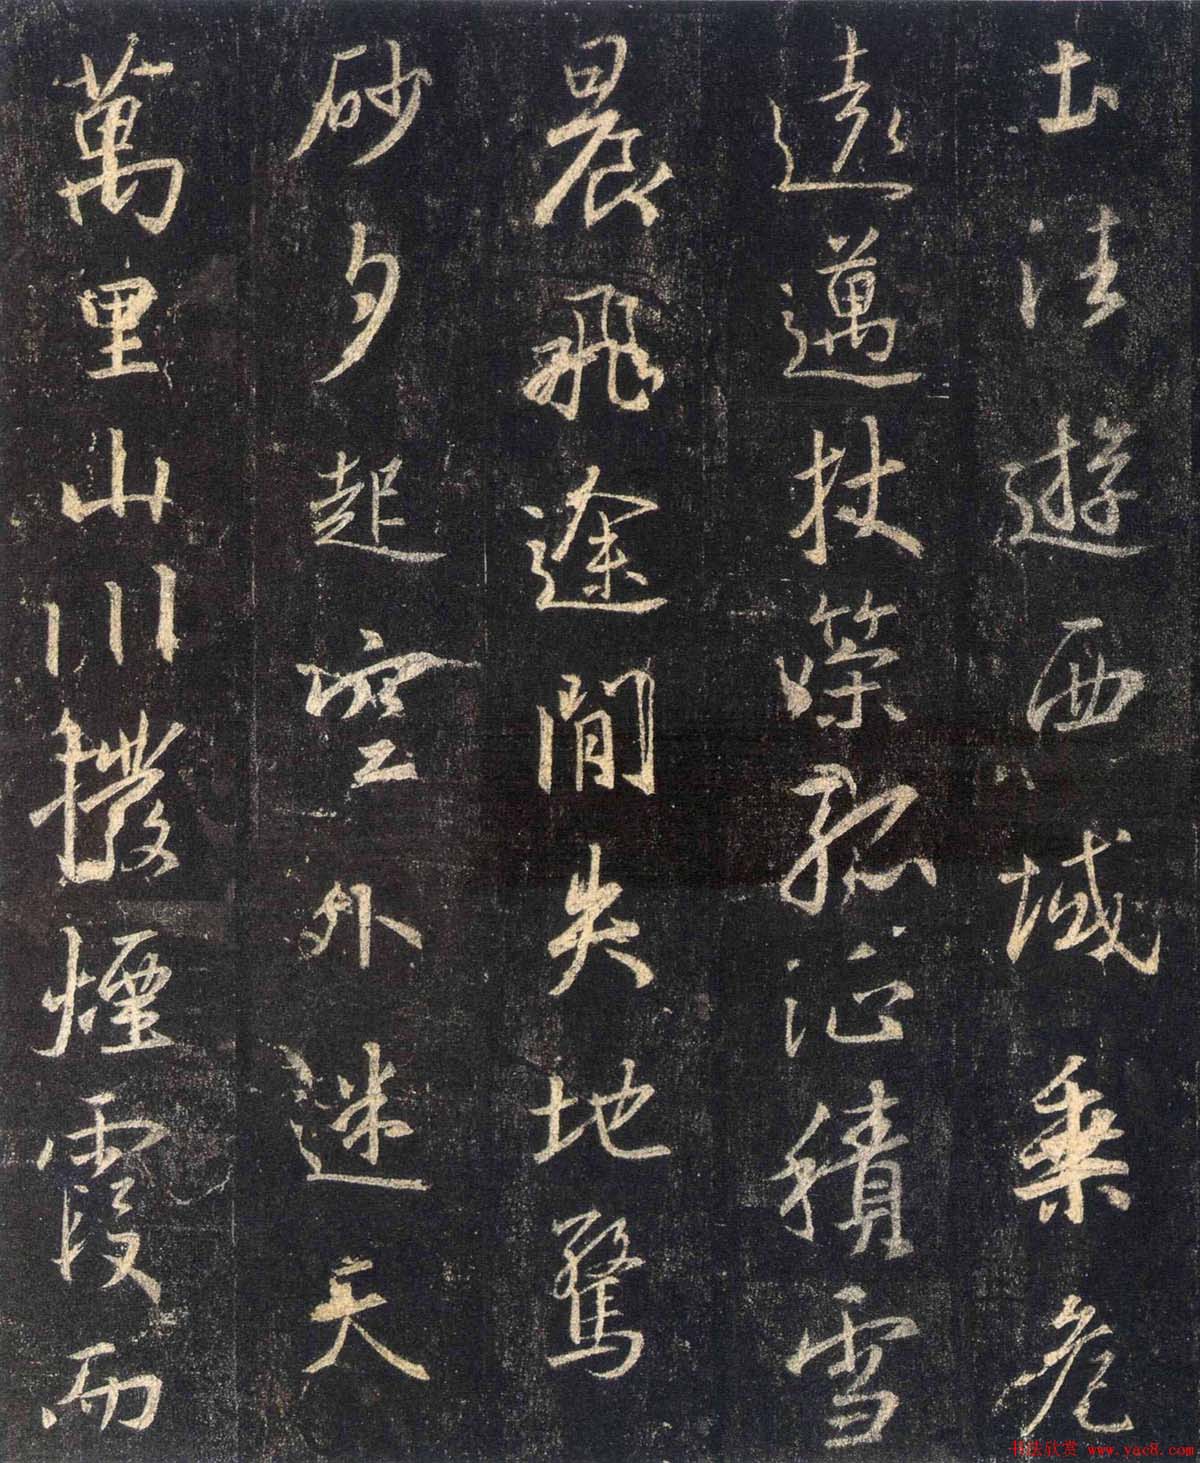 土注遊西域乗危
遠邁杖策孤征積雪
晨飛途間失地驚
砂夕起空外迷天
萬里山川撥煙霞而
书法欣赏 www.yac8.com